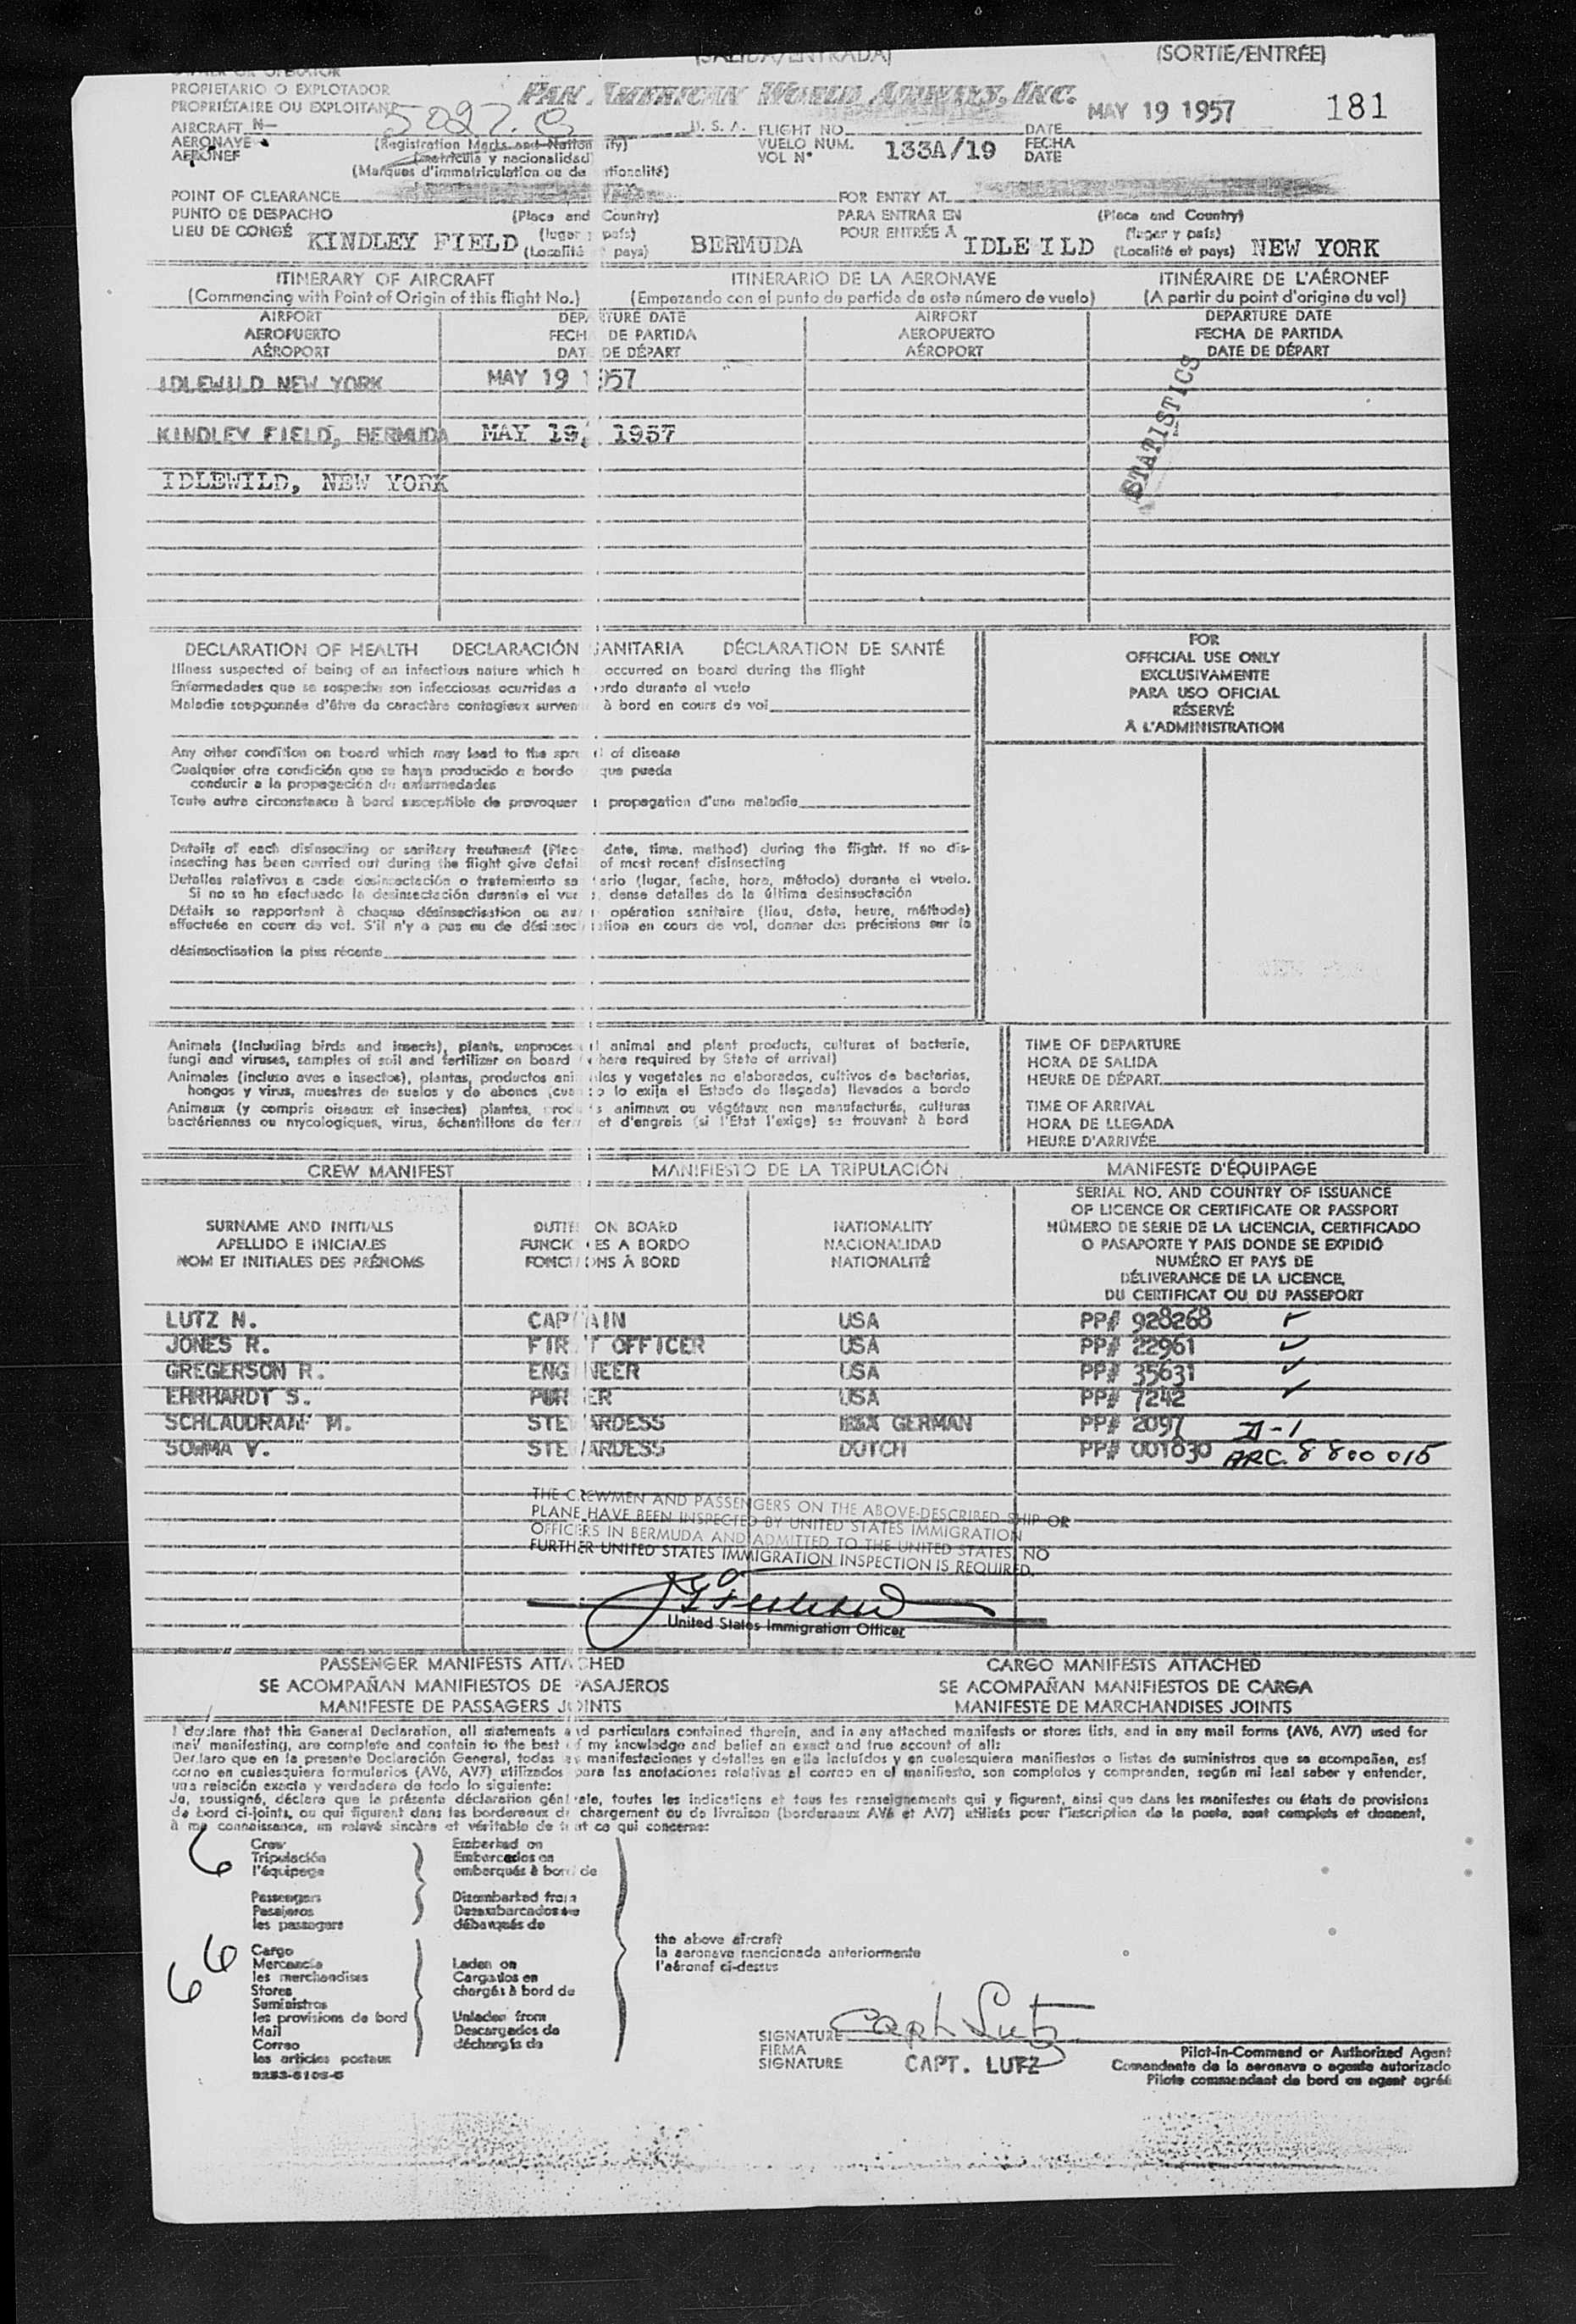 (SALIDA/ENTRADA) (SORTIE/ENTRÉE)
PROPIETARIO O EXPLOTADOR
PROPRIÉTAIRE OU EXPLOITANT PAN AMERICAN WORLD AIRWAYS, INC. MAY 19 1957 181
AIRCRAFT N- U. S. A. FLIGHT NO. DATE
AERONAVE (Registration Marks and Nation ity) VUELO NUM. 133A/19 FECHA
AÉRONEF (matrícula y nacionalidad) VOL Nº DATE
(Marques d'immatriculation ou de tionalité)
POINT OF CLEARANCE FOR ENTRY AT
PUNTO DE DESPACHO (Place and Country) PARA ENTRAR EN (Place and Country)
LIEU DE CONGÉ KINDLEY FIELD (lugar y país) BERMUDA POUR ENTRÉE À IDLE ILD (lugar y país) NEW YORK
(Localité et pays) (Localité et pays)
ITINERARY OF AIRCRAFT ITINERARIO DE LA AERONAVE ITINÉRAIRE DE L'AÉRONEF
(Commencing with Point of Origin of this flight No.) (Empezando con el punto de partida de este número de vuelo) (A partir du point d'origine du vol)
AIRPORT DEPARTURE DATE AIRPORT DEPARTURE DATE
AEROPUERTO FECHA DE PARTIDA AEROPUERTO FECHA DE PARTIDA
AÉROPORT DATE DE DÉPART AÉROPORT DATE DE DÉPART
IDLEWILD NEW YORK MAY 19 1957
STATISTICS
KINDLEY FIELD, BERMUDA MAY 19, 1957
IDLEWILD, NEW YORK
DECLARATION OF HEALTH DECLARACIÓN SANITARIA DÉCLARATION DE SANTÉ
Illness suspected of being of an infectious nature which h occurred on board during the flight
Enfermedades que se sospeche son infecciosas ocurridas a bordo durante el vuelo
Maladie soupçonnée d'être de caractère contagieux surven à bord en cours de vol
FOR
OFFICIAL USE ONLY
EXCLUSIVAMENTE
PARA USO OFICIAL
RÉSERVÉ
À L'ADMINISTRATION
Any other condition on board which may lead to the spre d of disease
Cualquier otra condición que se haya producido a bordo que pueda
conducir a la propagación de enfermedades
Toute autre circonstance à bord susceptible de provoquer propagation d'une maladie
Details of each disinsecting or sanitary treatment (Place date, time, method) during the flight. If no dis-
insecting has been carried out during the flight give detai of most recent disinsecting
Detalles relativos a cada desinsectación o tratamiento sa tario (lugar, fecha, hora, método) durante el vuelo.
Si no se ha efectuado la desinsectación durante el vue dense detalles de la última desinsectación
Détails se rapportant à chaque désinsectisation ou au opération sanitaire (lieu, date, heure, méthode)
effectuée en cours de vol. S'il n'y a pas eu de désinsectisation en cours de vol, donner des précisions sur la
désinsectisation la plus récente
Animals (Including birds and insects), plants, unprocessed animal and plant products, cultures of bacteria,
fungi and viruses, samples of soil and fertilizer on board (where required by State of arrival)
Animales (incluso aves e insectos), plantas, productos animales y vegetales no elaborados, cultivos de bacterias,
hongos y virus, muestras de suelos y de abonos (cuando lo exija el Estado de llegada) llevados a bordo
Animaux (y compris oiseaux et insectes) plantes, produits animaux ou végétaux non manufacturés, cultures
bactériennes ou mycologiques, virus, échantillons de terre et d'engrais (si l'État l'exige) se trouvant à bord
TIME OF DEPARTURE
HORA DE SALIDA
HEURE DE DÉPART
TIME OF ARRIVAL
HORA DE LLEGADA
HEURE D'ARRIVÉE
CREW MANIFEST MANIFIESTO DE LA TRIPULACIÓN MANIFESTE D'ÉQUIPAGE
SURNAME AND INITIALS DUTIES ON BOARD NATIONALITY
APELLIDO E INICIALES FUNCIONES A BORDO NACIONALIDAD
NOM ET INITIALES DES PRÉNOMS FONCTIONS À BORD NATIONALITÉ
SERIAL NO. AND COUNTRY OF ISSUANCE
OF LICENCE OR CERTIFICATE OR PASSPORT
NÚMERO DE SERIE DE LA LICENCIA, CERTIFICADO
O PASAPORTE Y PAIS DONDE SE EXPIDIÓ
NUMÉRO ET PAYS DE
DÉLIVERANCE DE LA LICENCE,
DU CERTIFICAT OU DU PASSEPORT
LUTZ N. CAPTAIN USA PP# 928268
JONES R. FIRST OFFICER USA PP# 22961
GREGERSON R. ENGINEER USA PP# 35631
EHRHARDT S. PURSER USA PP# 7242
SCHLAUDRAFF M. STEWARDESS GERMAN PP# 2097 D-1
SOMMA V. STEWARDESS DUTCH PP# 001030 ARC. 8800015
THE CREWMEN AND PASSENGERS ON THE ABOVE-DESCRIBED SHIP OR
PLANE HAVE BEEN INSPECTED BY UNITED STATES IMMIGRATION
OFFICERS IN BERMUDA AND ADMITTED TO THE UNITED STATES. NO
FURTHER UNITED STATES IMMIGRATION INSPECTION IS REQUIRED.
United States Immigration Officer
PASSENGER MANIFESTS ATTACHED CARGO MANIFESTS ATTACHED
SE ACOMPAÑAN MANIFIESTOS DE PASAJEROS SE ACOMPAÑAN MANIFIESTOS DE CARGA
MANIFESTE DE PASSAGERS JOINTS MANIFESTE DE MARCHANDISES JOINTS
I declare that this General Declaration, all statements and particulars contained therein, and in any attached manifests or stores lists, and in any mail forms (AV6, AV7) used for
mail manifesting, are complete and contain to the best of my knowledge and belief an exact and true account of all:
Declaro que en la presente Declaración General, todas las manifestaciones y detalles en ella incluídos y en cualesquiera manifiestos o listas de suministros que se acompañan, así
como en cualesquiera formularios (AV6, AV7) utilizados para las anotaciones relativas al correo en el manifiesto, son completos y comprenden, según mi leal saber y entender,
una relación exacta y verdadera de todo lo siguiente:
Je, soussigné, déclare que la présente déclaration générale, toutes les indications et tous les renseignements qui y figurent, ainsi que dans les manifestes ou états de provisions
de bord ci-joints, ou qui figurent dans les bordereaux de chargement ou de livraison (bordereaux AV6 et AV7) utilisés pour l'inscription de la poste, sont complets et donnent,
à ma connaissance, un relevé sincère et véritable de tout ce qui concerne:
6 Crew Embarked on
Tripulación Embarcados en
l'équipage embarqués à bord de
Passengers Disembarked from
Pasajeros Desembarcados de
les passagers débarqués de
66 Cargo
Mercancía Laden on
les merchandises Cargados en
Stores chargés à bord de
Suministros
les provisions de bord Unladen from
Mail Descargados de
Correo déchargés de
les articles postaux
9253-5105-6
the above aircraft
la aeronave mencionada anteriormente
l'aéronef ci-dessus
SIGNATURE Capt Lutz
FIRMA
SIGNATURE CAPT. LUTZ
Pilot-in-Command or Authorized Agent
Comandante de la aeronave o agente autorizado
Pilote commandant de bord ou agent agréé